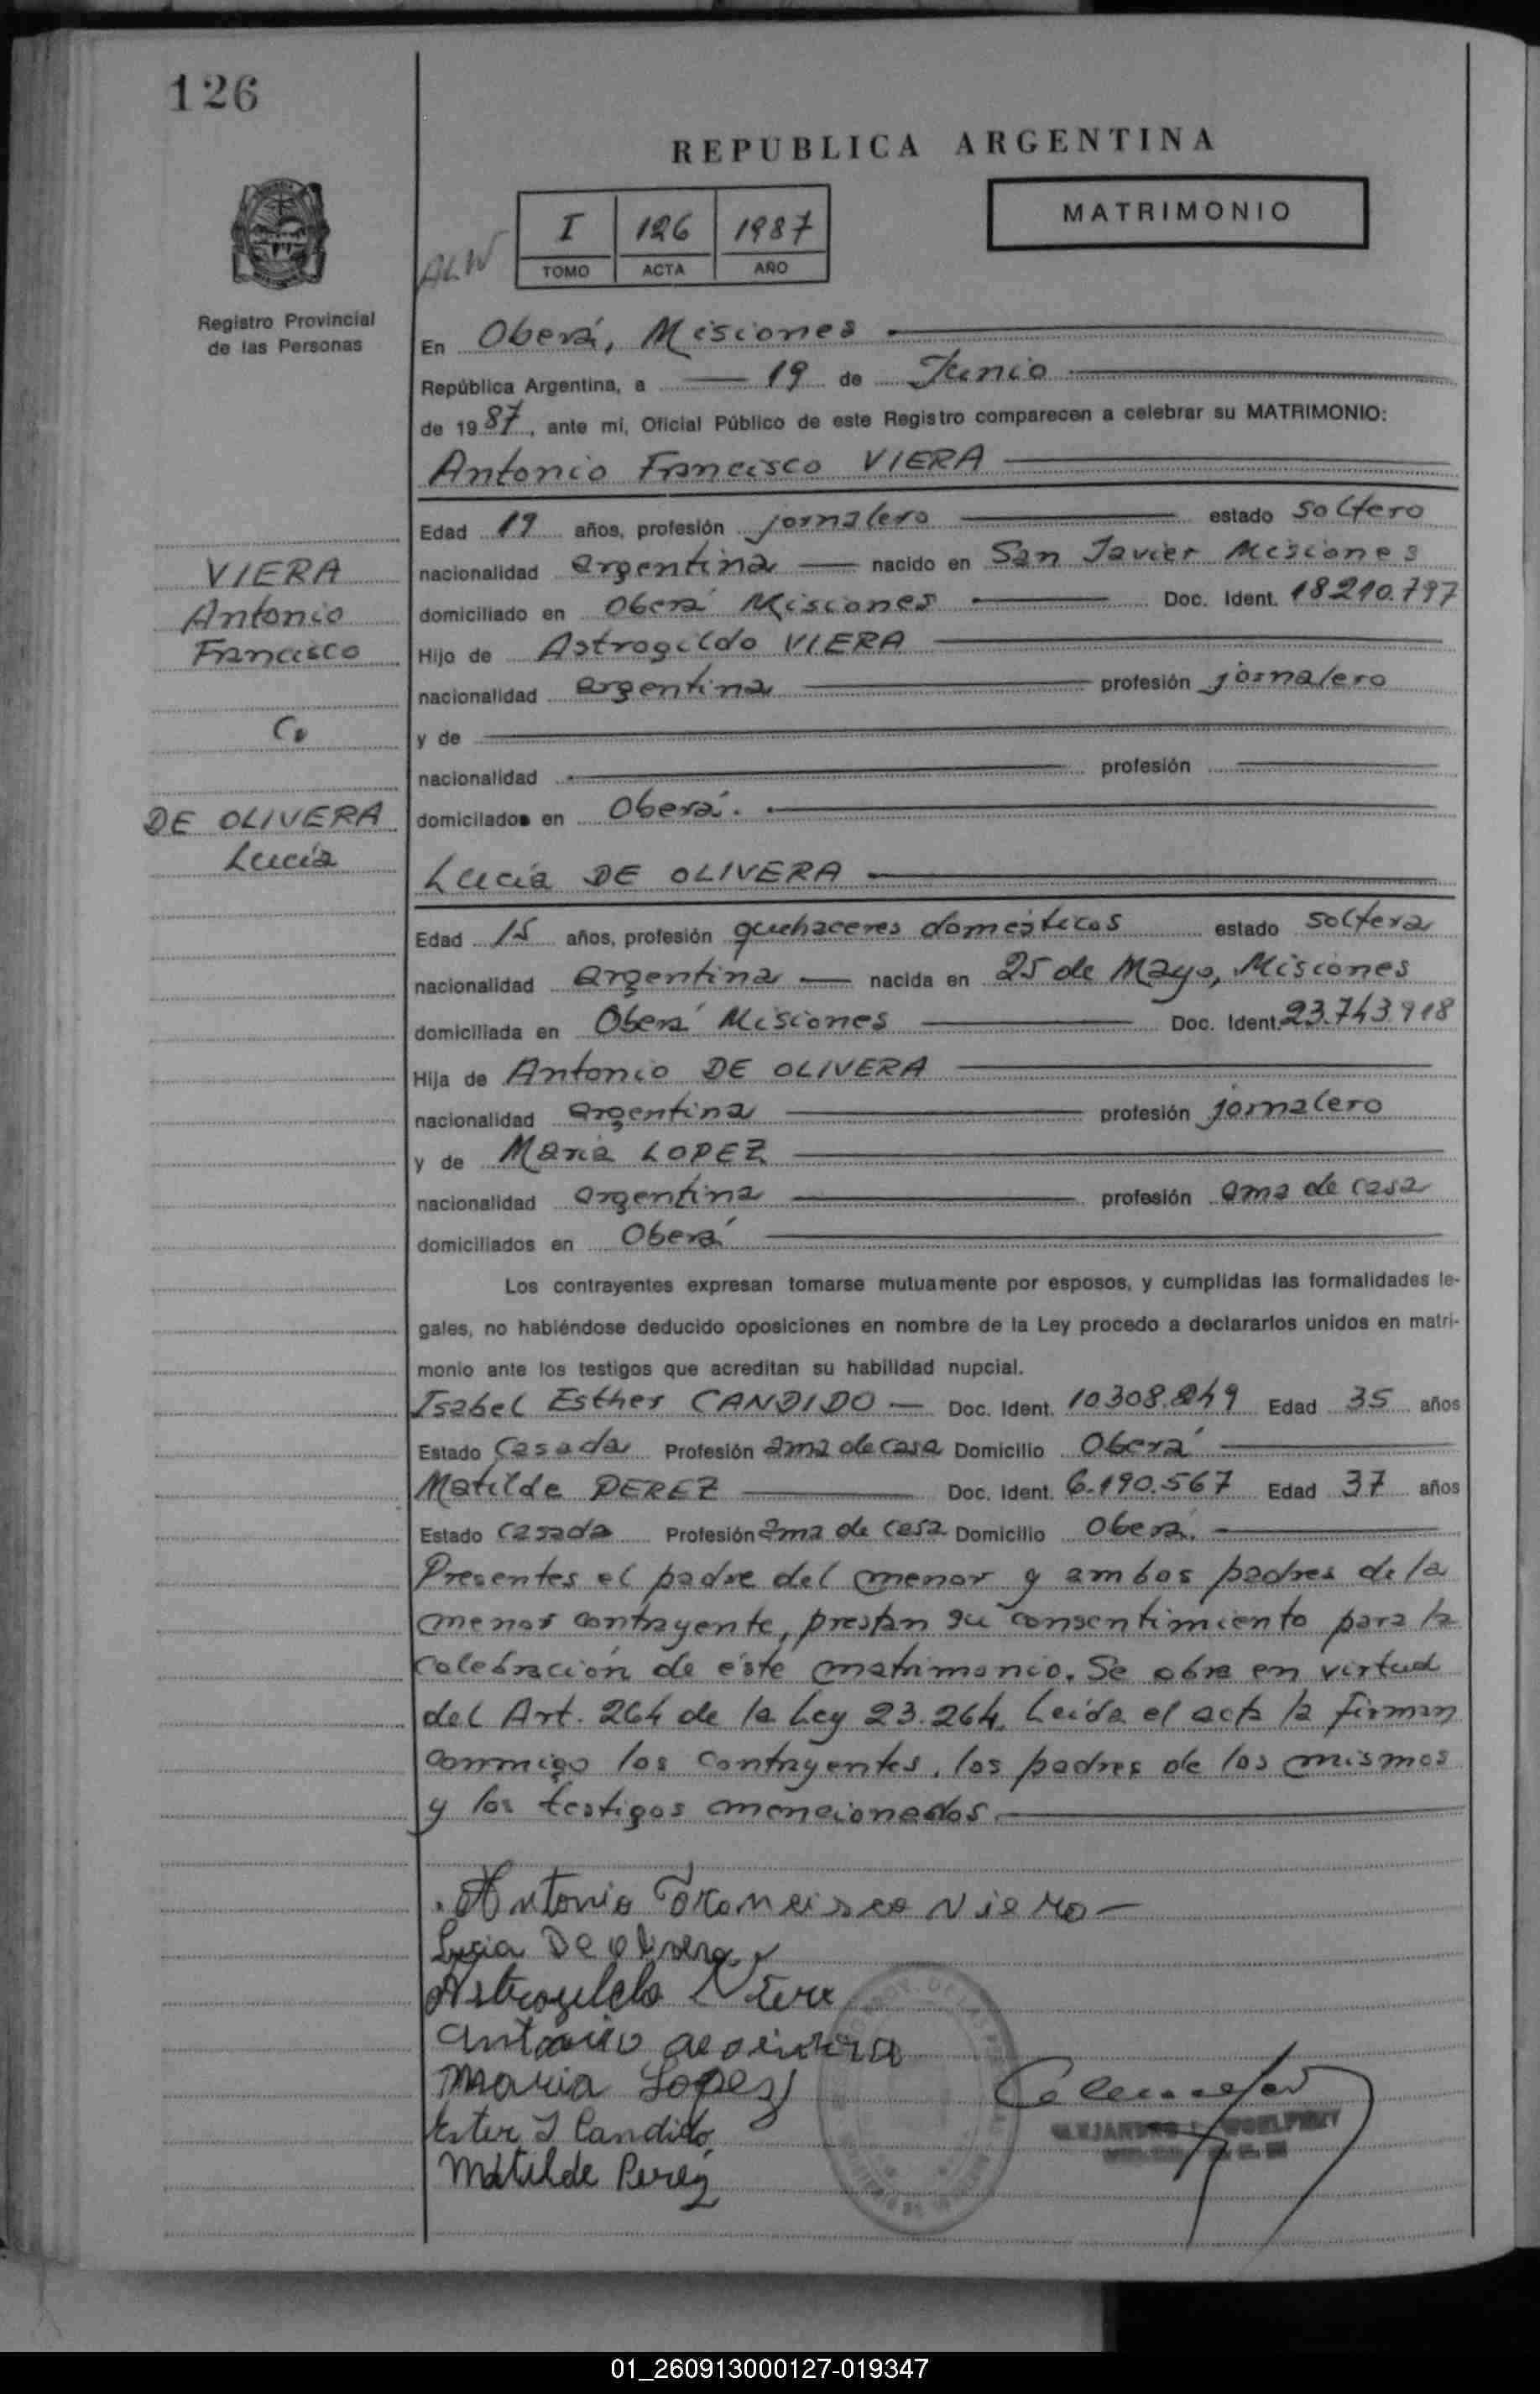 126
REPUBLICA ARGENTINA
MATRIMONIO
I 126 1987
TOMO ACTA AÑO
ALW
Registro Provincial
de las Personas
En Oberá, Misiones
República Argentina, a 19 de Junio
de 1987, ante mí, Oficial Público de este Registro comparecen a celebrar su MATRIMONIO:
Antonio Francisco VIERA
Edad 19 años, profesión jornalero estado soltero
nacionalidad argentina nacido en San Javier Misiones
domiciliado en Oberá Misiones Doc. Ident. 18210.797
Hijo de Astrogildo VIERA
nacionalidad argentina profesión jornalero
y de
nacionalidad profesión
domicilados en Oberá.
VIERA
Antonio
Francisco
C.
DE OLIVERA
Lucía
Lucía DE OLIVERA
Edad 15 años, profesión quehaceres domésticos estado soltera
nacionalidad argentina nacida en 25 de Mayo, Misiones
domiciliada en Oberá Misiones Doc. Ident. 23.743.918
Hija de Antonio DE OLIVERA
nacionalidad argentina profesión jornalero
y de María LOPEZ
nacionalidad argentina profesión ama de casa
domiciliados en Oberá
Los contrayentes expresan tomarse mutuamente por esposos, y cumplidas las formalidades le-
gales, no habiéndose deducido oposiciones en nombre de la Ley procedo a declararlos unidos en matri-
monio ante los testigos que acreditan su habilidad nupcial.
Isabel Esther CANDIDO Doc. Ident. 10308.249 Edad 35 años
Estado Casada Profesión ama de casa Domicilio Oberá
Matilde PEREZ Doc. Ident. 6.190.567 Edad 37 años
Estado casada Profesión ama de casa Domicilio Oberá.
Presentes el padre del menor y ambos padres de la
menor contrayente, prestan su consentimiento para la
celebración de éste matrimonio. Se obra en virtud
del Art. 264 de la Ley 23.264. Leída el acta la firman
conmigo los contrayentes, los padres de los mismos
y los testigos mencionados.
Antonio Francisco Viera
Lucia De olivera
Astrogildo Viera
Antonio de olivera
Maria Lopez
Ester I Candido
Matilde Perez
01_260913000127-019347